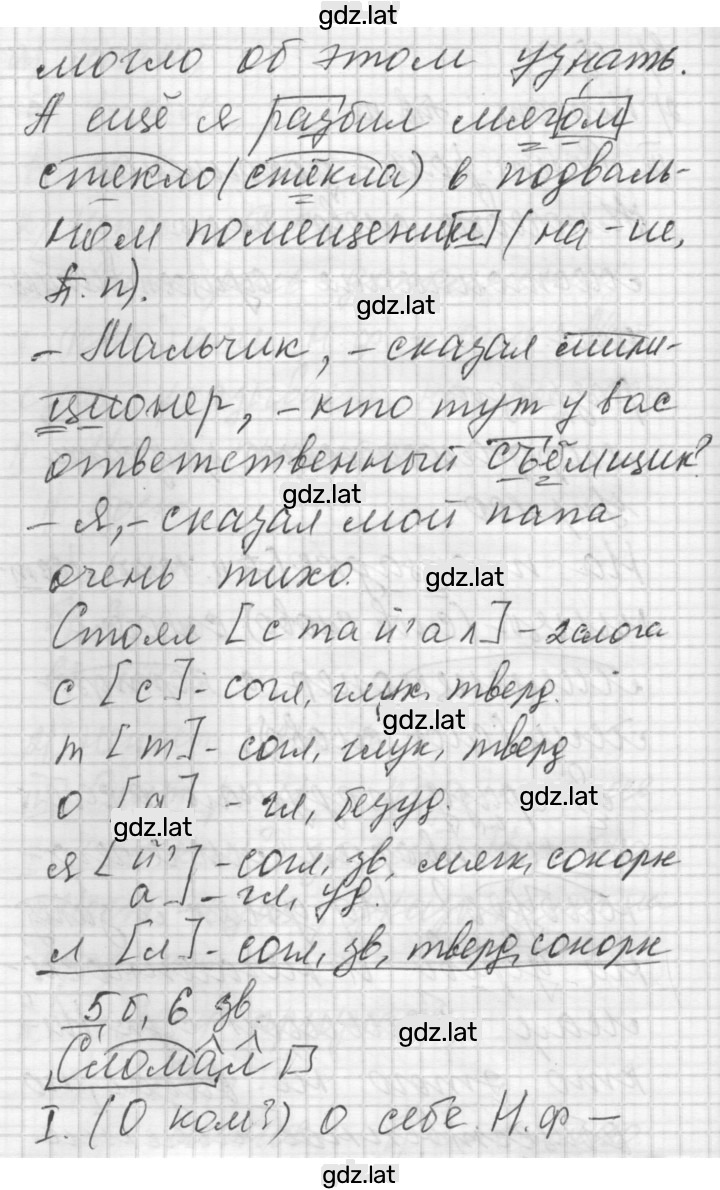 gdz.lat
могло об этом узнать.
А ещё я разбил мячом
стекло (стёкла) в подваль-
ном помещении (на -ие,
П. п).
gdz.lat
- Мальчик, - сказал мили-
ционер, - кто тут у вас
ответственный съёмщик?
gdz.lat
- Я, - сказал мой папа
очень тихо.
gdz.lat
Стоял [стай'ал] - 2 слога
с [с] - согл, глух, тверд.
gdz.lat
т [т] - согл, глух, тверд
о [а] - гл, безуд.
gdz.lat
gdz.lat
я [й'] - согл, зв, мягк, сонорн
а] - гл, уд.
л [л] - согл, зв, тверд, сонорн
5 б, 6 зв.
gdz.lat
Сломал
I. (О ком?) о себе. Н. ф —
gdz.lat